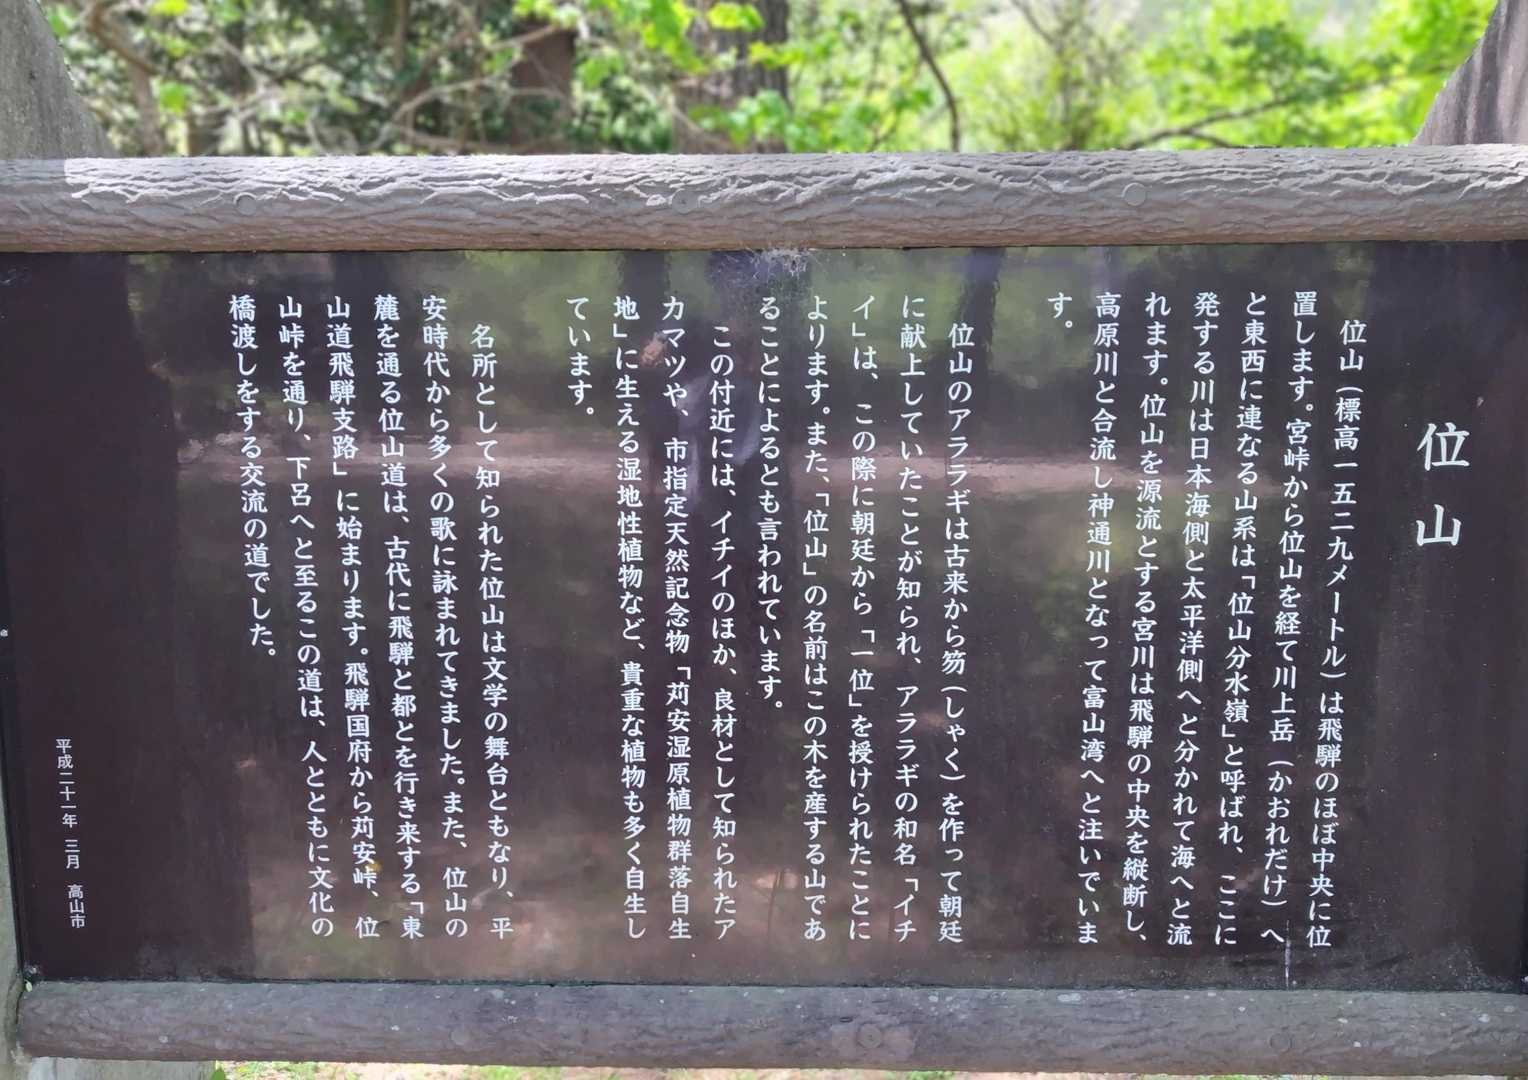 位山
位山(標高一五二九メートル)は飛騨のほぼ中央に位
置します。宮峠から位山を経て川上岳(かおれだけ)へ
と東西に連なる山系は「位山分水嶺」と呼ばれ、ここに
発する川は日本海側と太平洋側へと分かれて海へと流
れます。位山を源流とする宮川は飛騨の中央を縦断し、
高原川と合流し神通川となって富山湾へと注いでいま
す。
位山のアララギは古来から笏(しゃく)を作って朝廷
に献上していたことが知られ、アララギの和名「イチ
イ」は、この際に朝廷から「一位」を授けられたことに
よります。また、「位山」の名前はこの木を産する山であ
ることによるとも言われています。
この付近には、イチイのほか、良材として知られたア
カマツや、市指定天然記念物「苅安湿原植物群落自生
地」に生える湿地性植物など、貴重な植物も多く自生し
ています。
名所として知られた位山は文学の舞台ともなり、平
安時代から多くの歌に詠まれてきました。また、位山の
麓を通る位山道は、古代に飛騨と都とを行き来する「東
山道飛騨支路」に始まります。飛騨国府から苅安峠、位
山峠を通り、下呂へと至るこの道は、人とともに文化の
橋渡しをする交流の道でした。
平成二十一年 三月 高山市